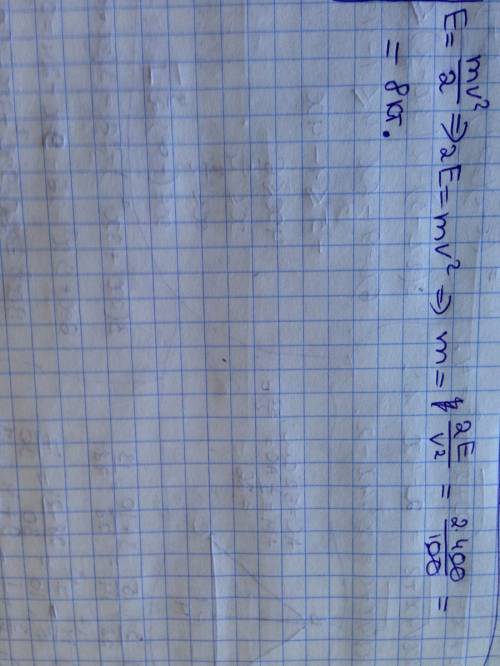 E = mv²/2 ⇒ 2E = mv² ⇒ m = 2E/v² = 2·400/100 =
= 8кг.